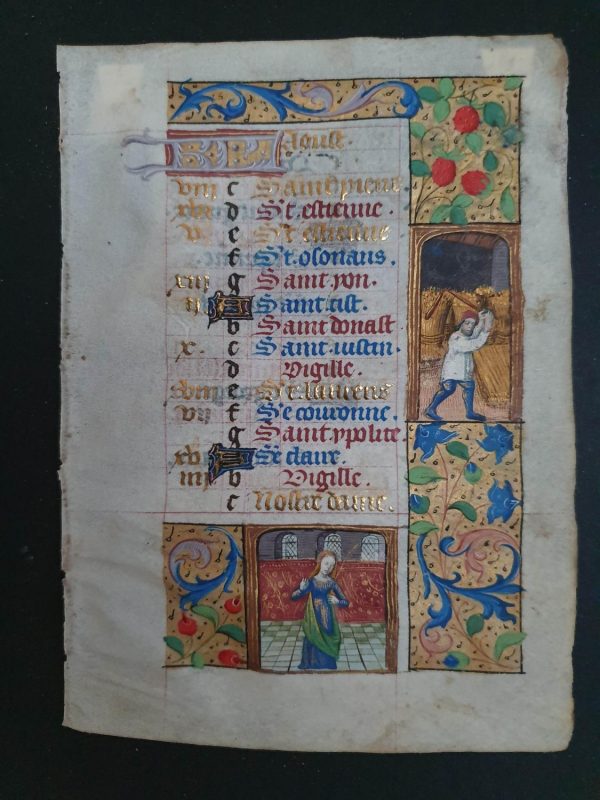 Aoust.
viii c Saint piere
d St. estienne.
v. e St estienne
f St. osouaus.
xiii g Saint yon.
ii A Saint sist.
b Saint donast
x. c Saint iustin.
d Vigille.
xviii e St. laurens
vii f Ste couronne.
g Saint ypolite.
xv A Ste claire.
iiii b Vigille.
c Nostre dame.